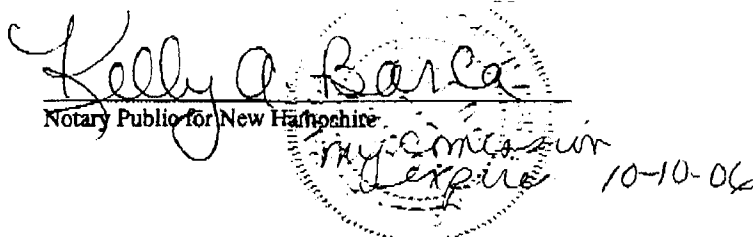 Kelly A Barca
Notary Public for New Hampshire
my comession
expire 10-10-06